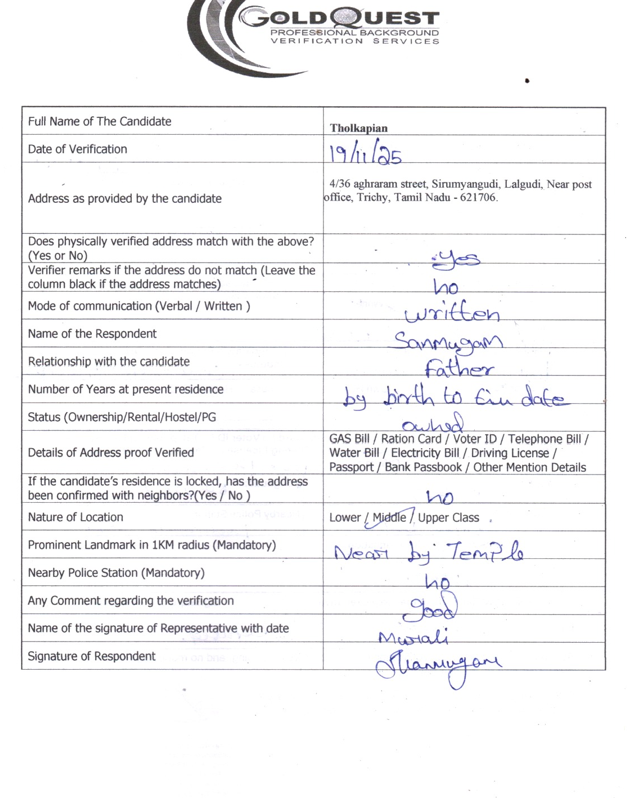 GOLDQUEST
PROFESSIONAL BACKGROUND
VERIFICATION SERVICES
Full Name of The Candidate
Tholkapian
Date of Verification
19/11/25
Address as provided by the candidate
4/36 aghraram street, Sirumyangudi, Lalgudi, Near post
office, Trichy, Tamil Nadu - 621706.
Does physically verified address match with the above?
(Yes or No)
yes
Verifier remarks if the address do not match (Leave the
column black if the address matches)
no
Mode of communication (Verbal / Written )
written
Name of the Respondent
Sanmugam
Relationship with the candidate
Father
Number of Years at present residence
by birth to date
Status (Ownership/Rental/Hostel/PG
owned
Details of Address proof Verified
GAS Bill / Ration Card / Voter ID / Telephone Bill /
Water Bill / Electricity Bill / Driving License /
Passport / Bank Passbook / Other Mention Details
If the candidate's residence is locked, has the address
been confirmed with neighbors?(Yes / No )
no
Nature of Location
Lower / Middle / Upper Class
Prominent Landmark in 1KM radius (Mandatory)
Near by Temple
Nearby Police Station (Mandatory)
no
Any Comment regarding the verification
good
Name of the signature of Representative with date
Murali
Signature of Respondent
Shanmugam